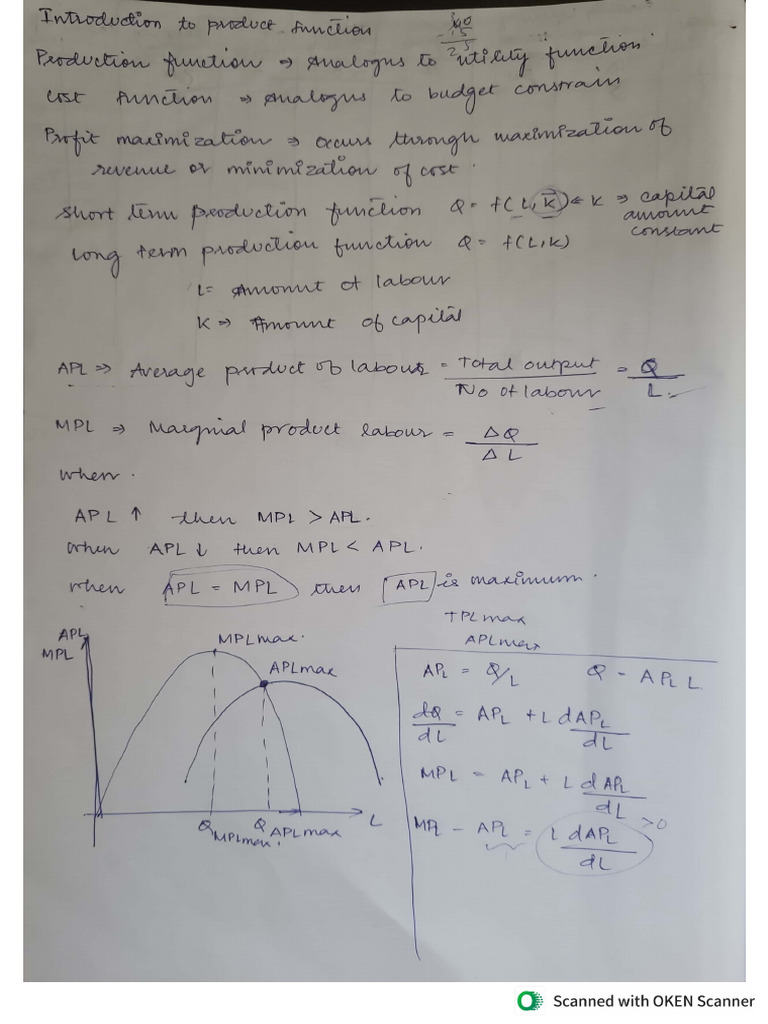 Introduction to product function
40
- 15
25
Production function ⇒ Analogus to utility function
cost function ⇒ Analogus to budget constrain
Profit maximization ⇒ occurs through maximization of
revenue or minimization of cost.
short term production function Q = f(L, K̄) ← K ⇒ capital
amount
constant
long term production function Q = f(L,K)
L= Amonut of labour
K ⇒ Amount of capital
APL ⇒ Average product of labour = Total output / No of labour = Q / L
MPL ⇒ Marginial product labour = ΔQ / ΔL
when.
APL ↑ then MPL > APL.
when APL ↓ then MPL < APL.
when APL = MPL then APL is maximum.
TPLmax
APLmax
APL
MPL
MPLmax.
APLmax
L
Q MPLmax.
Q APLmax
APL = Q/L Q - APL L
dQ/dL = APL + L dAPL/dL
MPL = APL + L dAPL/dL
MPL - APL = L dAPL/dL >0
Scanned with OKEN Scanner